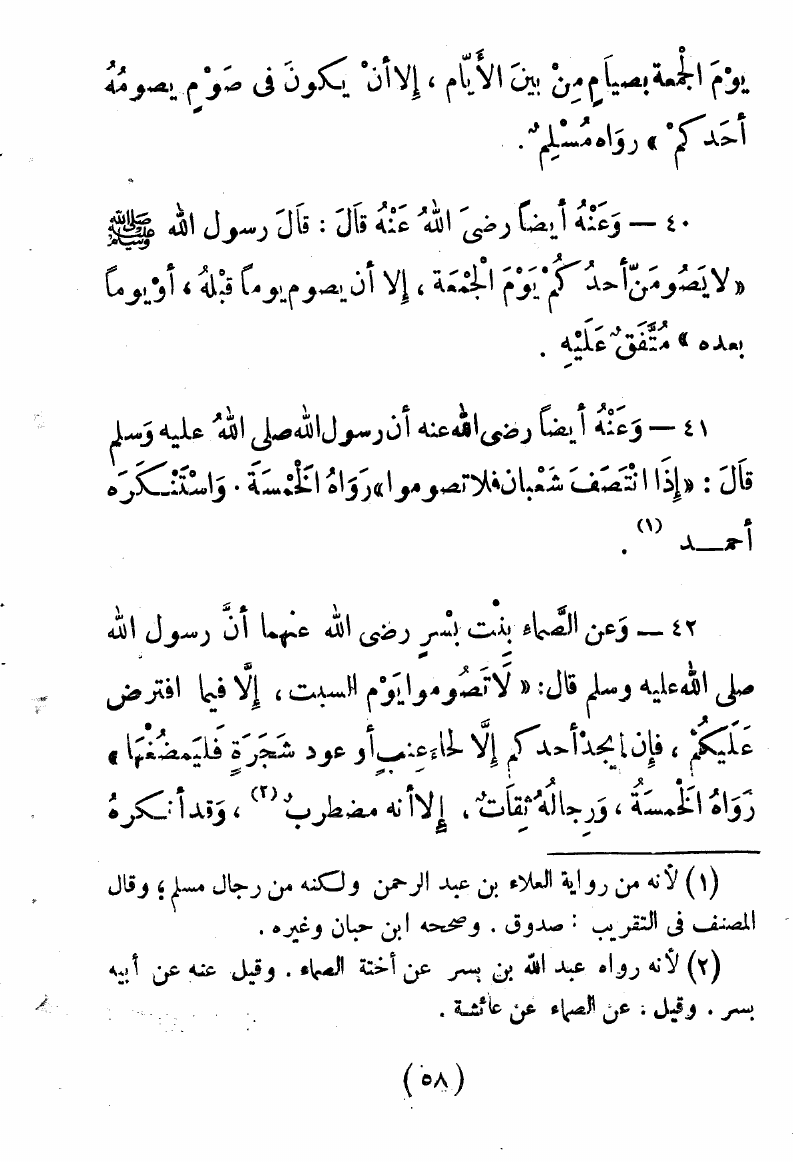 يوْمَ الْجُمعة بصيامٍ مِنْ بينَ الأَيّام ، إلا أنْ يكونَ فى صَوْمٍ يصومُهُ
أحَدكمْ » روَاه مُسْلِمٌ .
٤٠ — وَعَنْهُ أيضاً رضىَ اللهُ عَنْهُ قالَ : قالَ رسول الله ﷺ
« لا يَصُومَنَّ أحدُكُمْ يَوْمَ الْجُمْعَة ، إلا أن يصوم يوماً قبْلهُ ، أوْ يوماً
بعده » مُتَّفَقٌ عَلَيْهِ .
٤١ — وَعَنْهُ أيضاً رضى الله عنه أن رسول الله صلى اللهُ عليه وَسلم
قالَ : « إِذَا انْتَصَفَ شَعْبان فلا تصوموا » رَوَاهُ الْخَمْسَةَ . وَاسْتَنْكَرَه
أحمد (١) .
٤٢ — وَعن الصَّماء بِنْت بُسْرٍ رضى الله عنهما أنَّ رسول الله
صلى الله عليه وسلم قال: « لَا تَصُوموا يَوْم السبت ، إلَّا فيما افترض
عَلَيكُمْ ، فإن لم يجدْ أحدكم إلَّا لحاء عِنبٍ أو عود شَجَرَةٍ فَليَمضُغْهَا »
رَوَاهُ الْخَمسَةُ ، وَرجالُهُ ثِقَاتٌ ، إلا أنه مضطربٌ (٢) ، وَقد أنكرهُ
(١) لأنه من رواية العلاء بن عبد الرحمن ولكنه من رجال مسلم ؛ وقال
المصنف فى التقريب : صدوق . وصححه ابن حبان وغيره .
(٢) لأنه رواه عبد الله بن بسر عن أختة الصماء . وقيل عنه عن أبيه
بسر . وقيل : عن الصماء عن عائشة .
( ٥٨ )